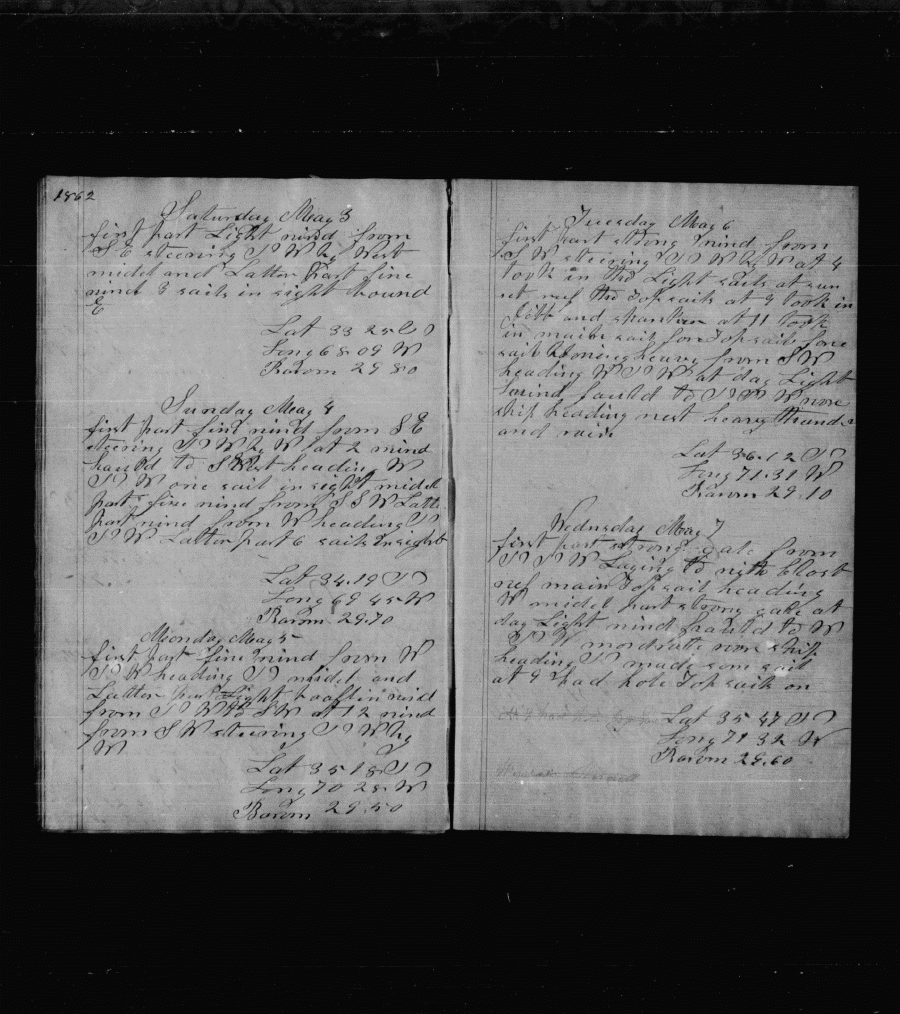 1862
Saturday May 3
first part Light wind from
S E steering N W by West
midel and Latter part fine
wind 8 sails in sight bound
E
Lat 33 25 N
Long 68 09 W
Barom 29 80
Sunday May 4
first part fine wind from S E
steering N W by W at 2 wind
hauld to S West heading W
N W one sail in sight midel
part fine wind from S S W Latter
part wind from W heading N
N W Latter part 6 sails in sight
Lat 34.19 N
Long 69 45 W
Barom 29.70
Monday May 5
first part fine wind from W
N W heading N midel and
Latter part Light baflin wind
from N W to S W at 12 wind
from S W steering N W by
W
Lat 35 18 N
Long 70 28 W
Barom 29.50
Tuesday May 6
first part strong wind from
S W steering N W by W at 4
took in the Light sails at sun
set reef the Topsails at 9 took in
Jibb and spanker at 11 took
in main sail fore Topsail fore
sail coming heavy from S W
heading W N W at day Light
wind hauld to N N W wore
ship heading west heavy thunder
and rain
Lat 36.12 N
Long 71.31 W
Barom 29.10
Wednsday May 7
first part strong gale from
N N W Laying to with Close
reef main Topsail heading
W midel part strong gale at
day Light wind hauld to W
N W moderate wore ship
heading N made som sail
at 9 had hole Topsails on
Lat 35 47 N
Long 71 32 W
Barom 29.60